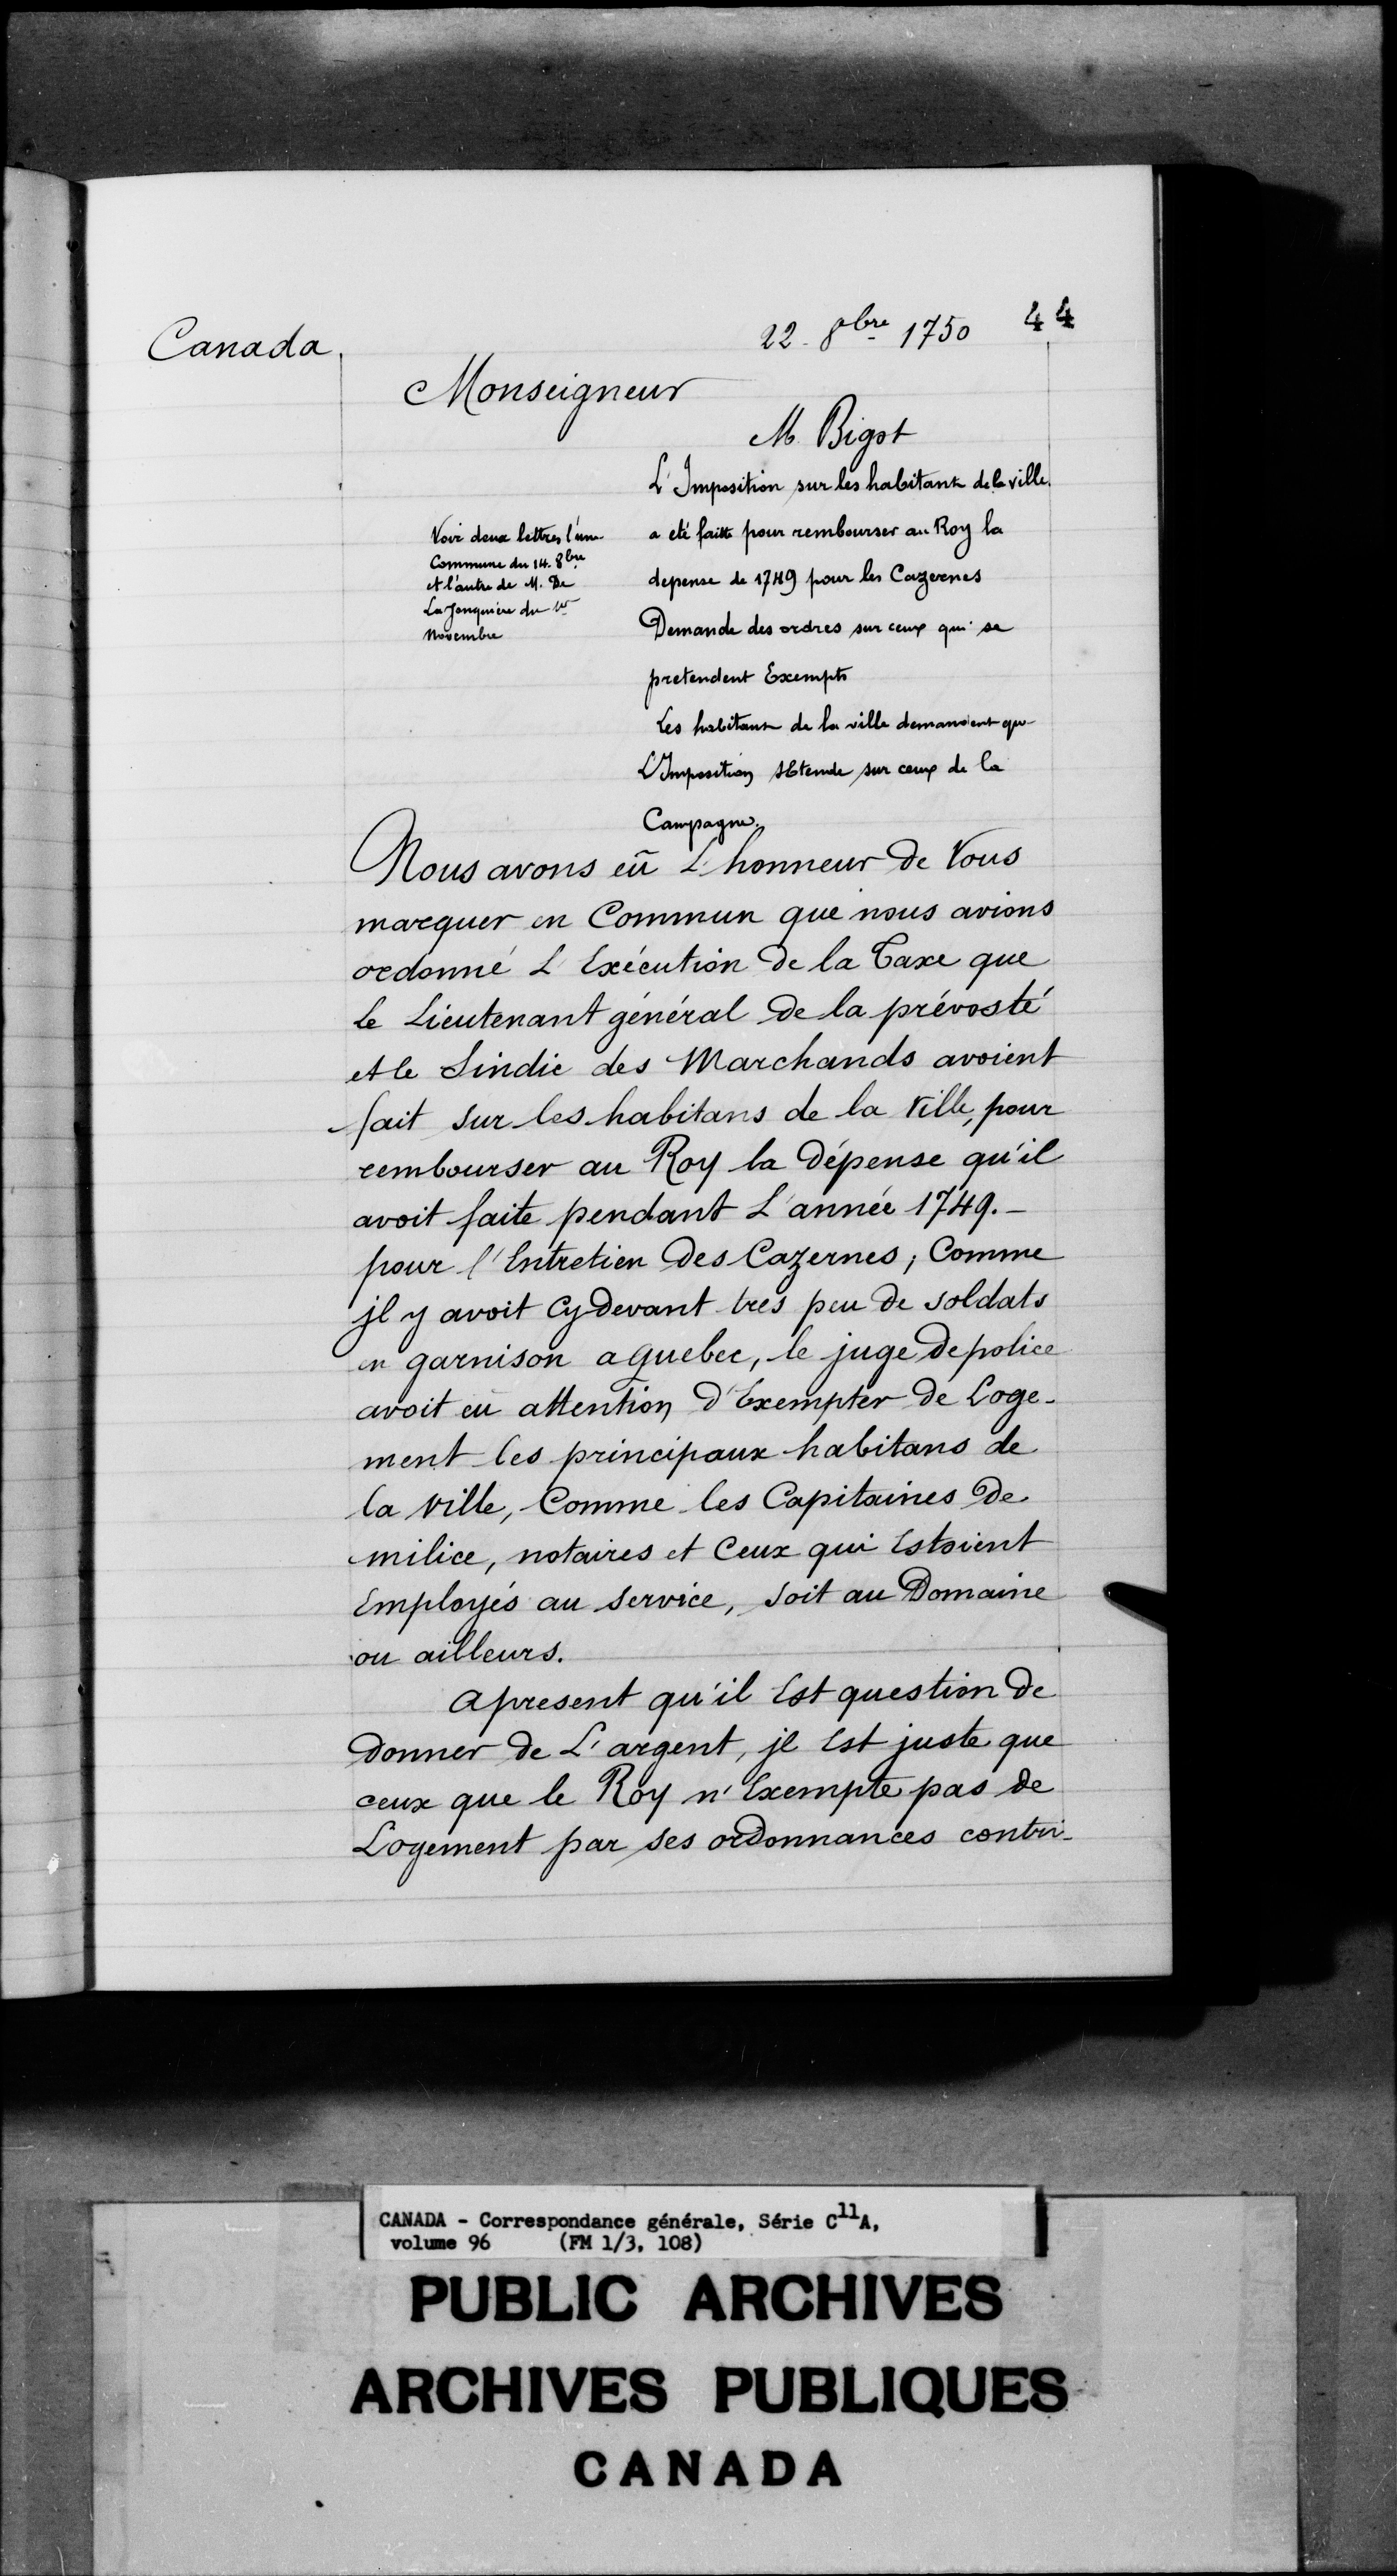 Canada
22. 8bre 1750 44
Monseigneur
M. Bigot
L'Imposition sur les habitans de la ville
a eté faitte pour rembourser au Roy la
depense de 1749 pour les Cazernes
Demande des ordres sur ceux qui se
pretendent Exempts
Les habitans de la ville demandent que
L'Imposition s'Etende sur ceux de la
Campagne.
Voir deux lettres l'une
Commune du 14. 8bre
et l'autre de M. De
La Jonquiere du 1er
Novembre
Nous avons eû L'honneur de Vous
marquer en Commun que nous avions
ordonné L'Exécution de la Taxe que
le Lieutenant général de la prévosté
et le Sindic des Marchands avoient
fait sur les habitans de la Ville, pour
rembourser au Roy la Dépense qu'il
avoit faite pendant L'année 1749. -
pour l'Entretien Des Cazernes; Comme
jl y avoit Cy Devant tres peu de soldats
en garnison a quebec, le juge de police
avoit eû attention D'Exempter de Loge-
ment les principaux habitans de
la ville, Comme les Capitaines De
milice, notaires et Ceux qui Estoient
Employés au service, soit au Domaine
ou ailleurs.
apresent qu'il Est question De
donner de L'argent, jl Est juste que
ceux que le Roy n'Exempte pas de
Logement par ses ordonnances contri-
CANADA - Correspondance générale, Série C11A,
volume 96 (FM 1/3, 108)
PUBLIC ARCHIVES
ARCHIVES PUBLIQUES
CANADA